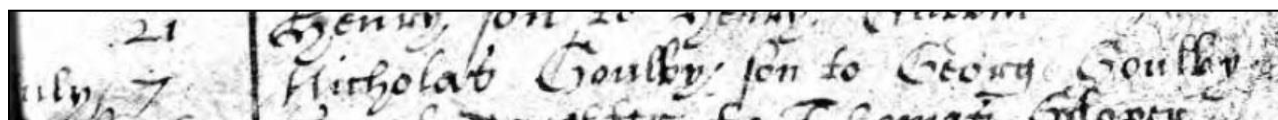 21 Henry son to Henry
uly 7 Nicholas Goulby son to Georg Goulby
to Thomas